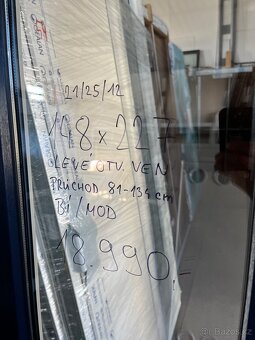 21/25/12
148 x 227
LEVÉ OTV. VEN
PRŮCHOD 81-134 cm
BÍ/MOD
18.990